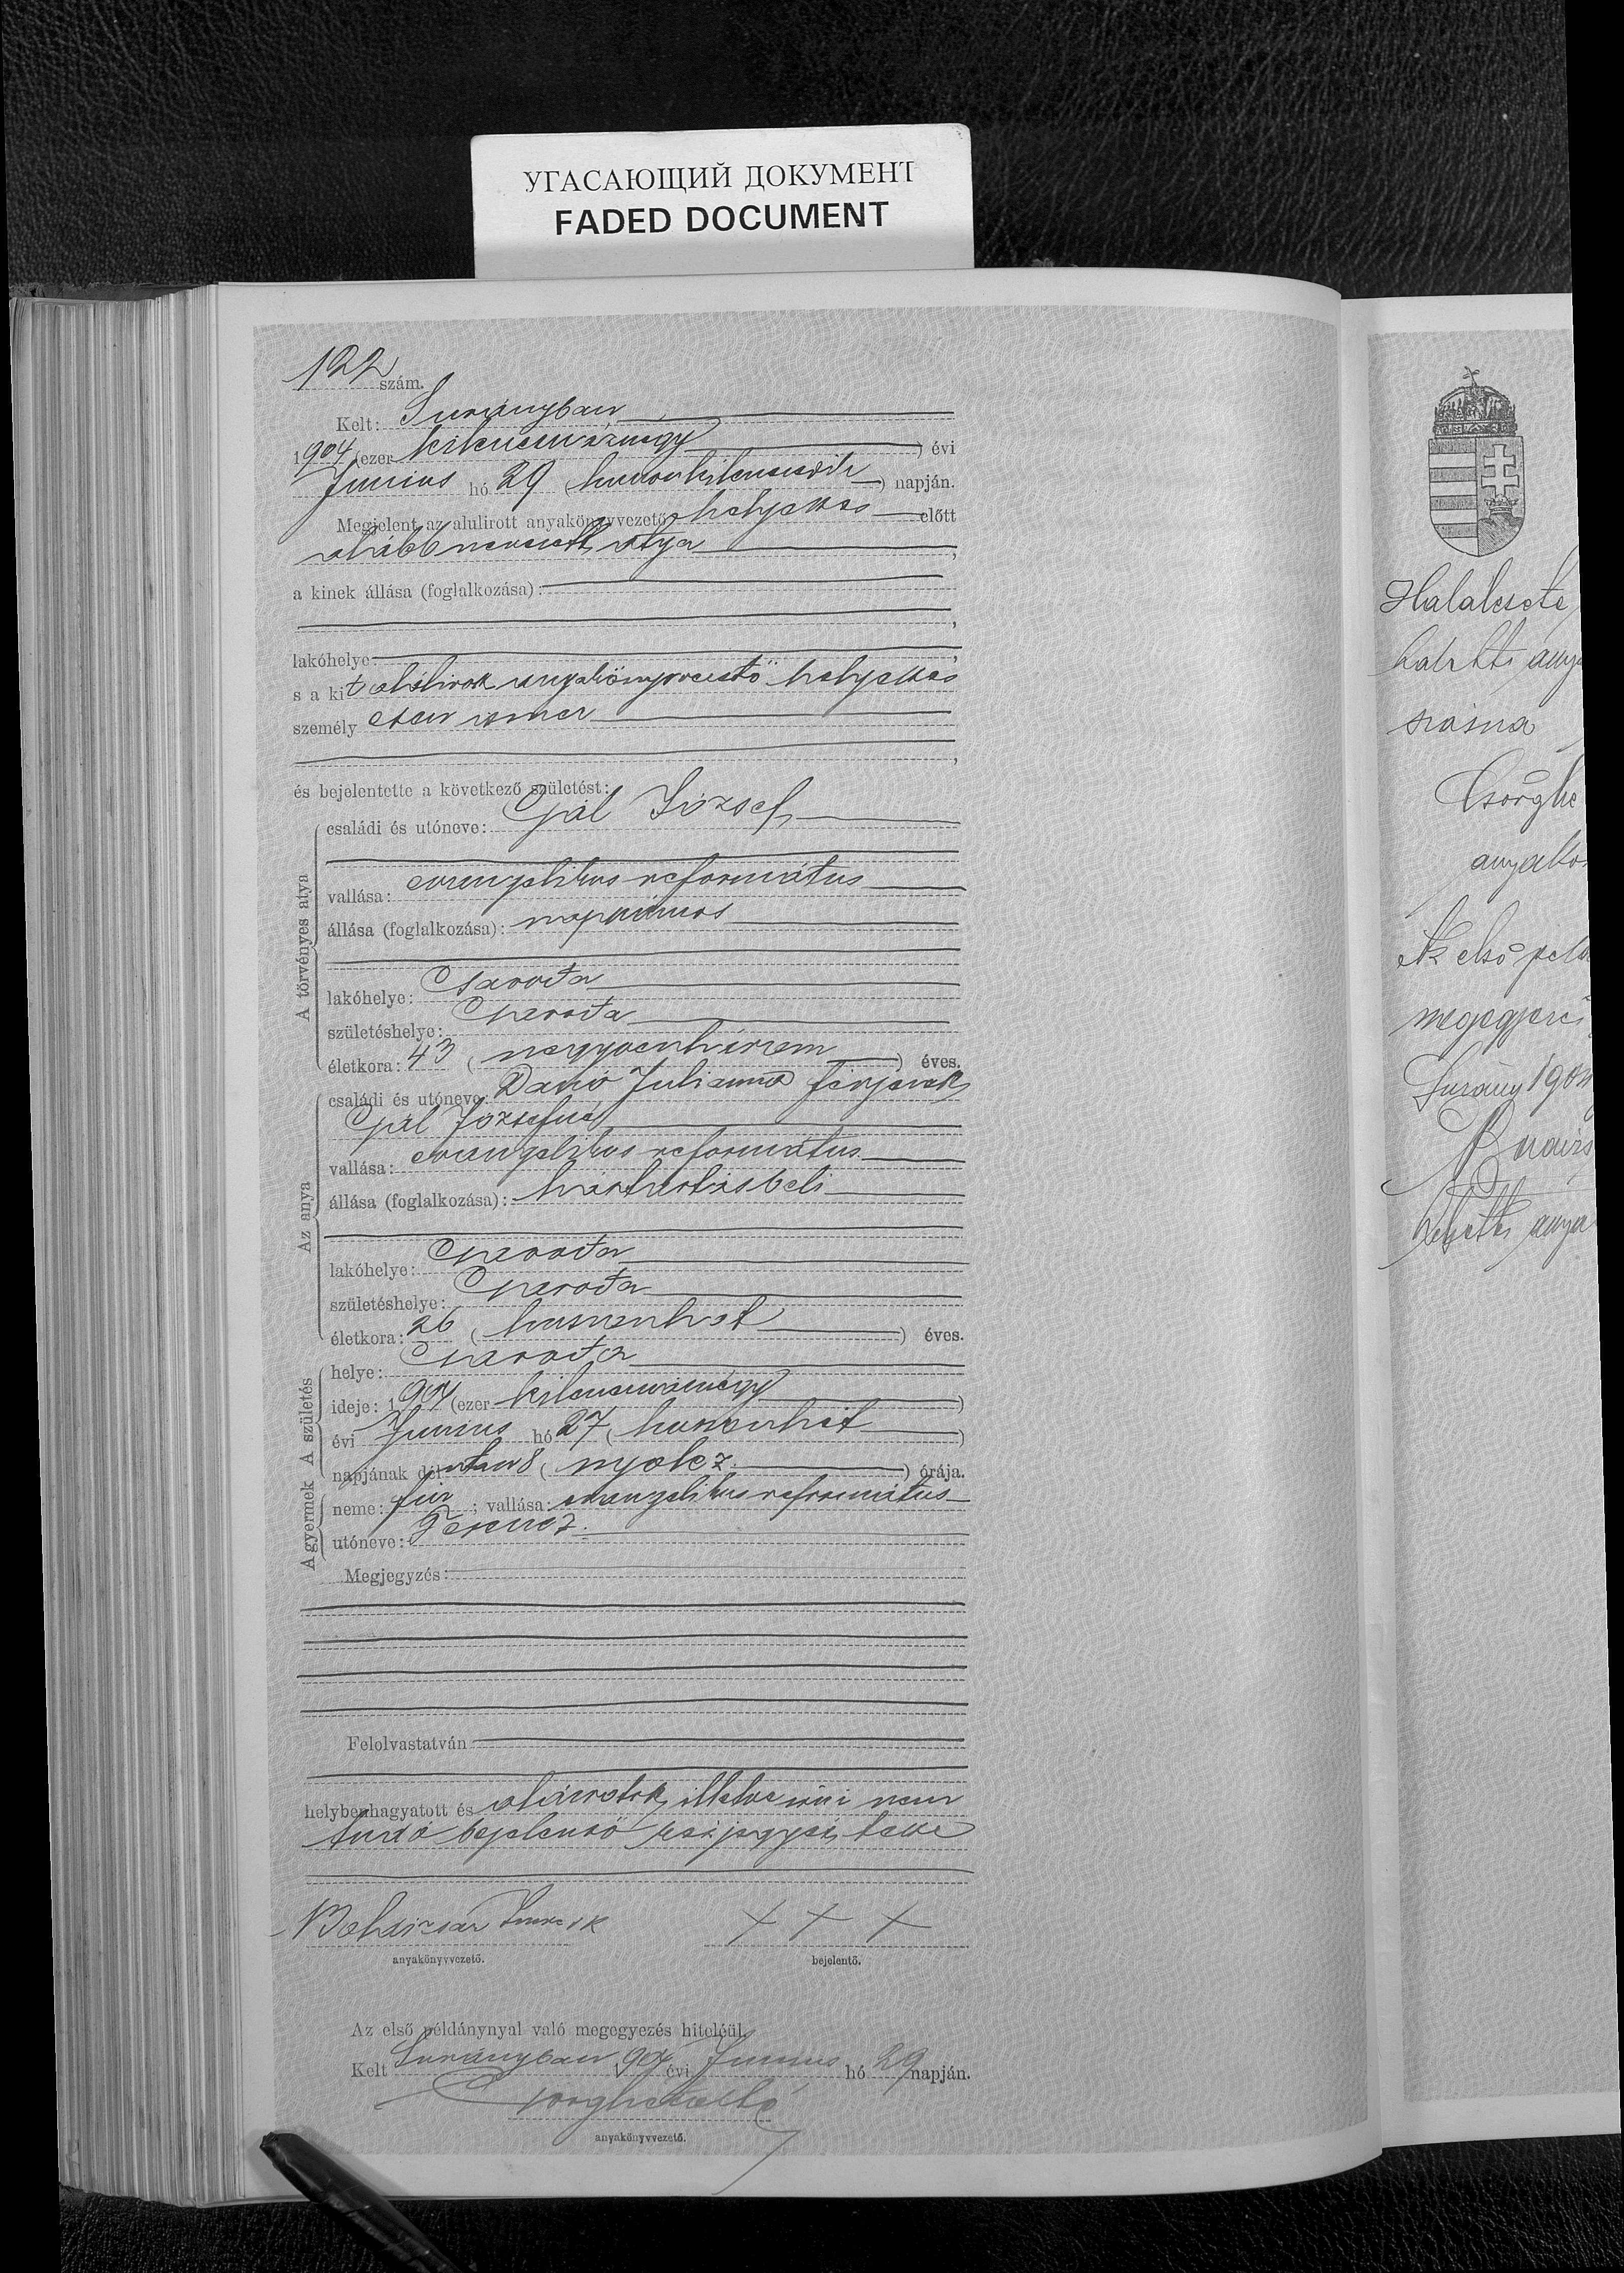 УГАСАЮЩИЙ ДОКУМЕНТ
FADED DOCUMENT
122 szám.
Kelt: Surányban
1904 (ezer kilenczáznégy) évi
Junius hó 29 (huszonkilenczedik) napján.
Megjelent az alulirott anyakönyvvezető helyettes előtt
alább nevezett atya,
a kinek állása (foglalkozása):
lakóhelye:
s a kit alulirott anyakönyvvezető helyettes
személyesen ismer
és bejelentette a következő születést:
A törvényes atya
családi és utóneve: Gál József
vallása: evangelikus református
állása (foglalkozása): napszámos
lakóhelye: Csaroda
születéshelye: Csaroda
életkora: 43 (negyvenhárom) éves.
Az anya
családi és utóneve: Julianna férjezett
Gál Józsefné
vallása: evangelikus református
állása (foglalkozása): háztartásbeli
lakóhelye: Csaroda
születéshelye: Csaroda
életkora: 26 (huszonhat) éves.
A születés
helye: Csaroda
ideje: 1904 (ezer kilenczáznégy)
évi Junius hó 27 (huszonhét)
napjának délután 8 (nyolcz) órája.
A gyermek
neme: fiu; vallása: evangelikus református
utóneve: Ferencz.
Megjegyzés:
Felolvastatván
helybenhagyatott és aláiratott, illetve irni nem
tudó bejelentő kézjegyével
Imre sk + + +
anyakönyvvezető. bejelentő.
Az első példánynyal való megegyezés hiteléül.
Kelt Surányban 1904 évi Junius hó 29 napján.
anyakönyvvezető.
Az első
Surány 1904